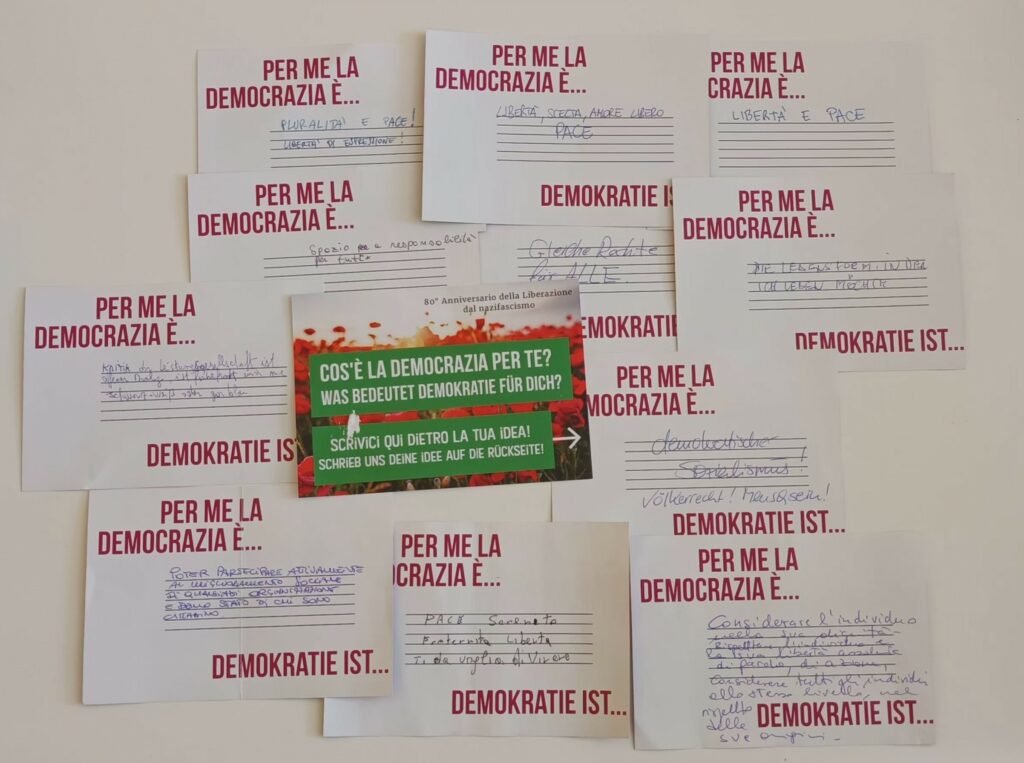 PER ME LA
DEMOCRAZIA È...
PLURALITA' E PACE!
LIBERTA' DI ESPRESSIONE!
PER ME LA
DEMOCRAZIA È...
LIBERTÀ, SCELTA, AMORE LIBERO
PACE
DEMOKRATIE IS
PER ME LA
CRAZIA È...
LIBERTA' E PACE
PER ME LA
DEMOCRAZIA È...
Spazio responsabilità
per tutt*
Gleiche Rechte
für ALLE
EMOKRATIE
PER ME LA
DEMOCRAZIA È...
DIE LEBENSFORM, IN DER
ICH LEBEN MÖCHTE
DEMOKRATIE IST...
PER ME LA
DEMOCRAZIA È...
Kritik der Leistungsgesellschaft ist
schwarz-weiß oder
DEMOKRATIE IST
80° Anniversario della Liberazione
dal nazifascismo
COS'È LA DEMOCRAZIA PER TE?
WAS BEDEUTET DEMOKRATIE FÜR DICH?
SCRIVICI QUI DIETRO LA TUA IDEA!
SCHRIEB UNS DEINE IDEE AUF DIE RÜCKSEITE!
PER ME LA
MOCRAZIA È...
demokratischer
Sozialismus!
Völkerrecht! Mensch sein!
DEMOKRATIE IST...
PER ME LA
DEMOCRAZIA È...
POTER PARTECIPARE ATTIVAMENTE
AL MIGLIORAMENTO SOCIALE
DI QUALSIASI ORGANIZZAZIONE
E DELLO STATO DI CUI SONO
CITTADINO
DEMOKRATIE IST...
PER ME LA
CRAZIA È...
PACE Serenità
Fraternita Liberta
Ti da voglia di Vivere
DEMOKRATIE IST...
PER ME LA
DEMOCRAZIA È...
Considerare l'individuo
nella sua
Rispettare l'individuo e
la sua libertà assoluta
di parola, di azione,
Considerare tutti gli individui
allo stesso livello, nel
rispetto
delle
sue origini.
DEMOKRATIE IST...